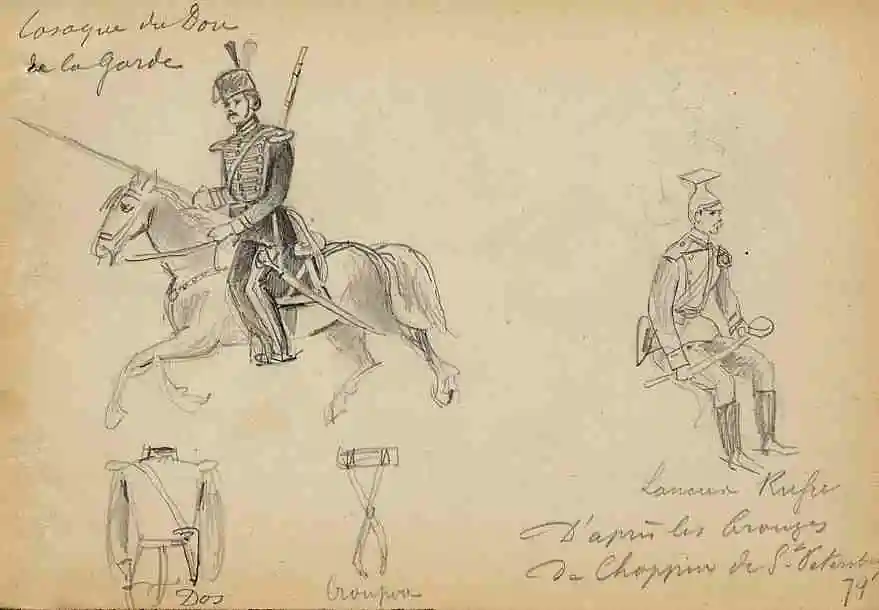 Cosaque du Don
de la Garde
Dos
Croupion
Lancier Russe
D'après les bronzes
De Choppin de St Petersbg
79